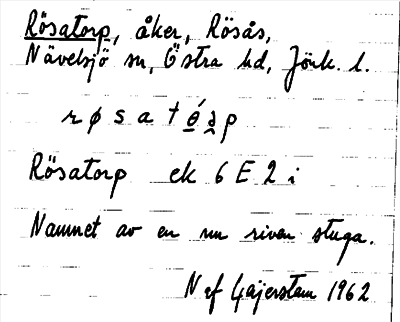 Rösatorp, åker, Rösås,
Nävelsjö sn, Östra hd, Jönk. l.
røsató̲rp
Rösatorp ek 6 E 2 i
Namnet av en nu riven stuga.
N ef Gajerstam 1962